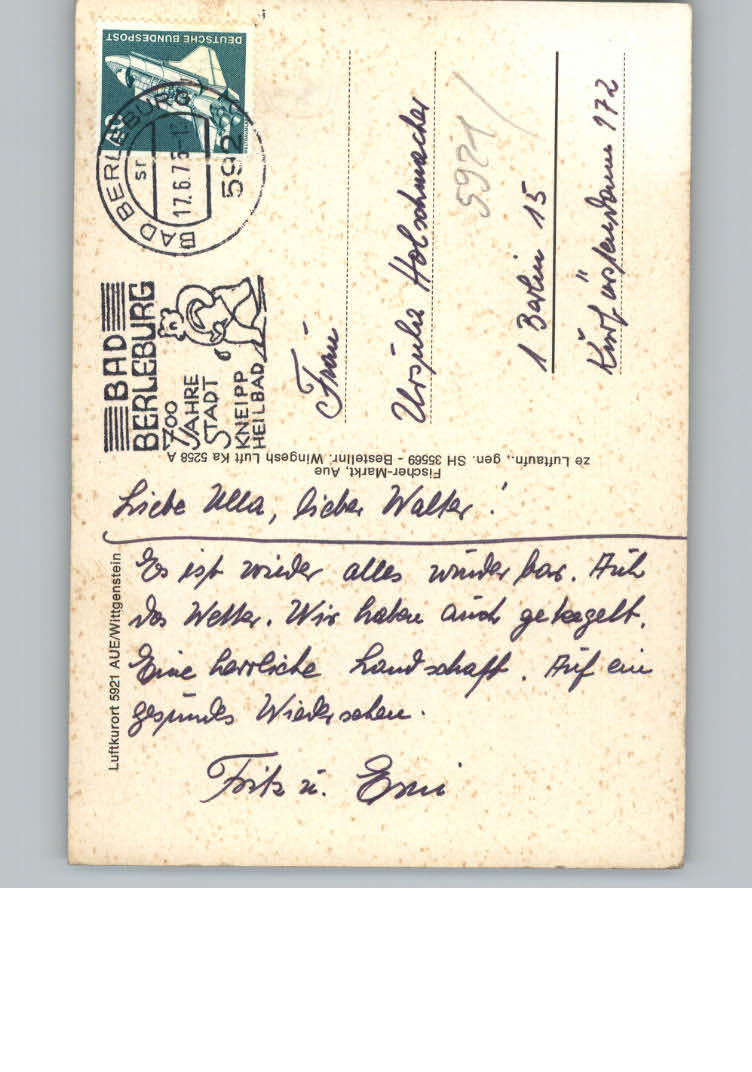 DEUTSCHE BUNDESPOST
BAD BERLEBURG
sr
17.6.7
592
BAD
BERLEBURG
700
JAHRE
STADT
KNEIPP
HEILBAD
Frau
Ursula Holschmacher
5921
1 Berlin 15
Kurfürstendamm 172
ze Luftaufn., gen. SH 35569 - Bestellnr. Wingesh Luft Ka 5258 A
Fischer-Markt, Aue
Luftkurort 5921 AUE/Wittgenstein
Liebe Ulla, lieber Walter!
Es ist wieder alles wunderbar. Auch
das Wetter. Wir haben auch gekegelt.
Eine herrliche Landschaft. Auf ein
gesundes Wiedersehen.
Fritz u. Erni